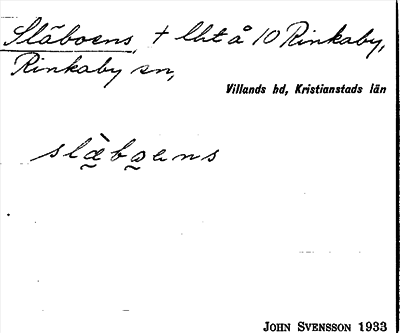 Släboens, + lht å 10 Rinkaby,
Rinkaby sn,
Villands hd, Kristianstads län
slæ̀bo̰ens
JOHN SVENSSON 1933